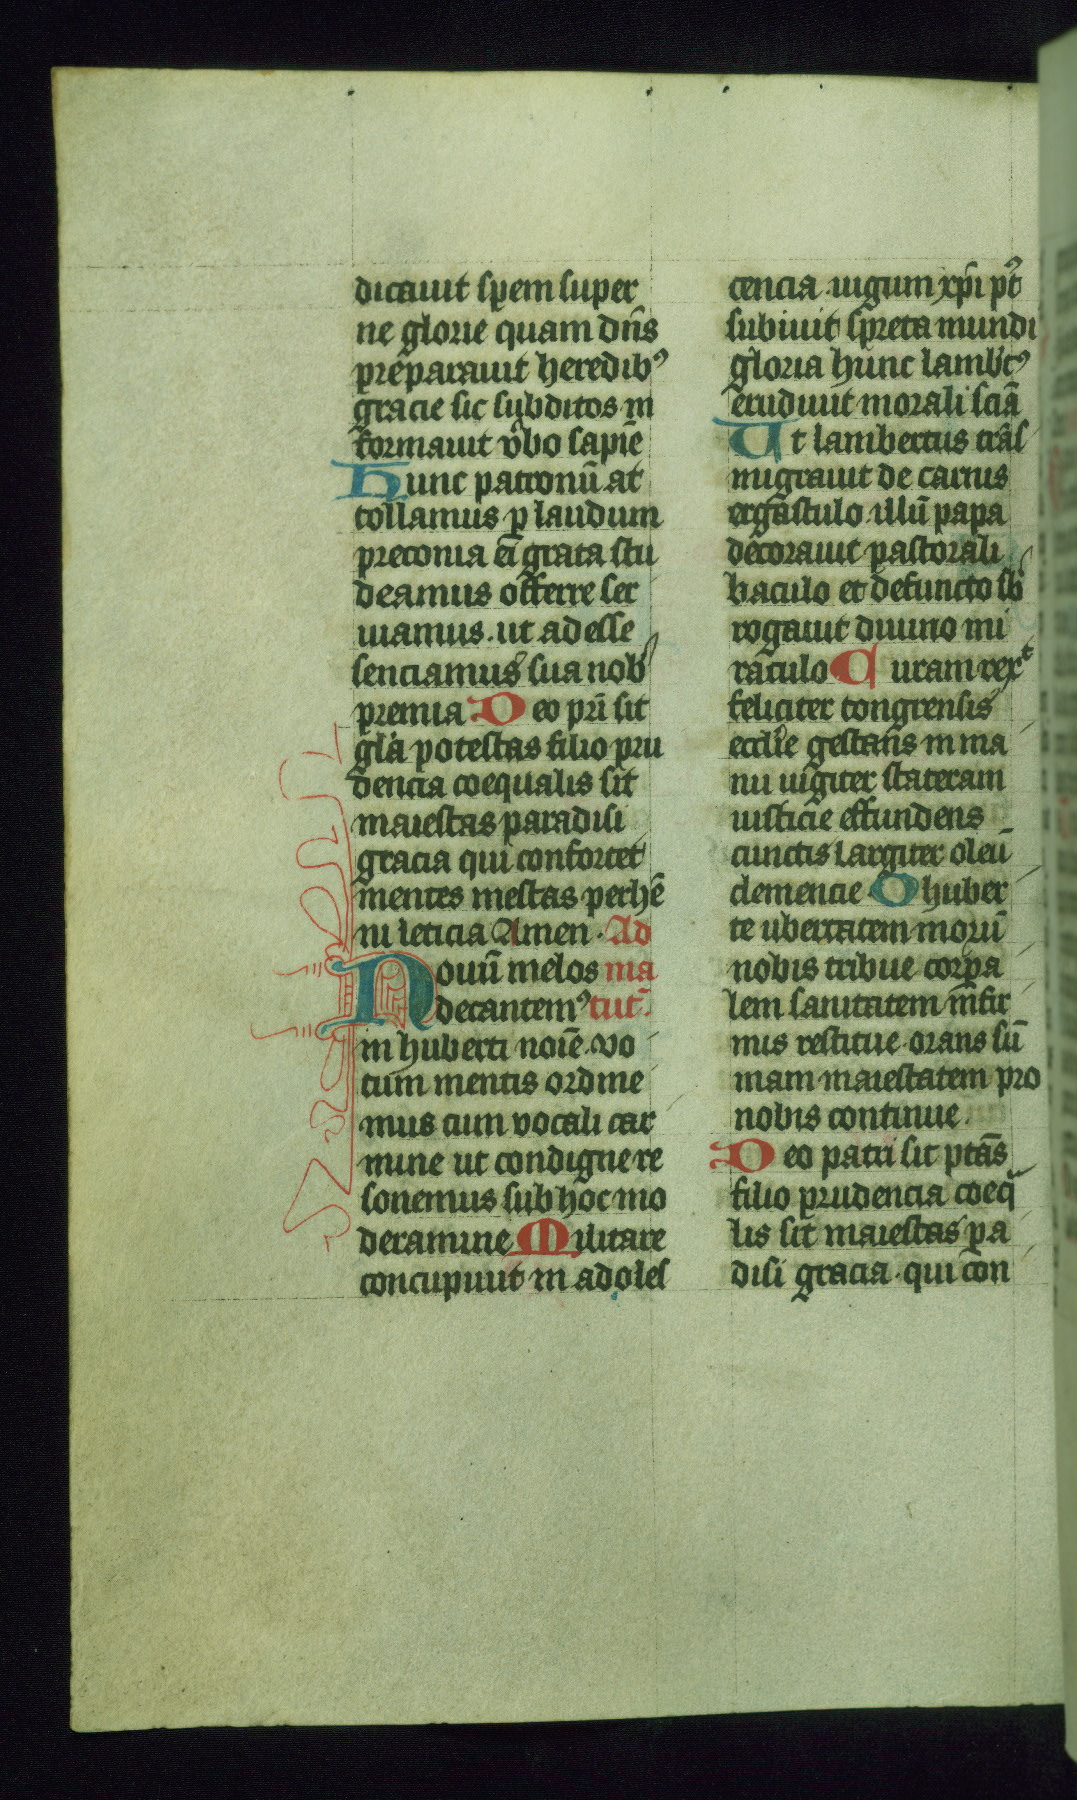 dictauit spem super
ne glorie quam dn̄s
preparauit heredibꝰ
gracie sic subditos in
formauit v̓bo sapiē
Hunc patronū at
tollamus ꝑ laudum
preconia ei grata stu
deamus offerre ser
uiamus. ut adesse
senciamus sua nob
premia Deo pr̄i sit
gl̓a potestas filio pru
dencia coequalis sit
maiestas paradisi
gracia qui confortet
mentes mestas perhē
ni leticia Amen. Ad
Nouū melos ma
decantemꝰ tut̄.
in huberti noīe. vo
tum mentis ordine
mus cum vocali car
mine ut condigne re
sonemus sub hoc mo
deramine Militare
concupiuit in adoles
cencia iugum xp̄i p̄t
subiuit spreta mundi
gloria hunc lamb̓tꝰ
erudiuit morali sciā
Ut lambertus trās
migrauit de carnis
ergastulo illū papa
decorauit pastorali
baculo et defuncto sb
rogauit diuino mi
raculo Curam rexͭ
feliciter tongrensis
eccl̓ie gestans in ma
nu iugiter stateram
iusticie effundens
cunctis largiter oleū
clemencie O huber
te ubertatem morū
nobis tribue corꝑa
lem sanitatem īnfir
mis restitue orans sū
mam maiestatem pro
nobis continue.
Deo patri sit ptās
filio prudencia coeq̄
lis sit maiestas ꝑa
disi gracia. qui con